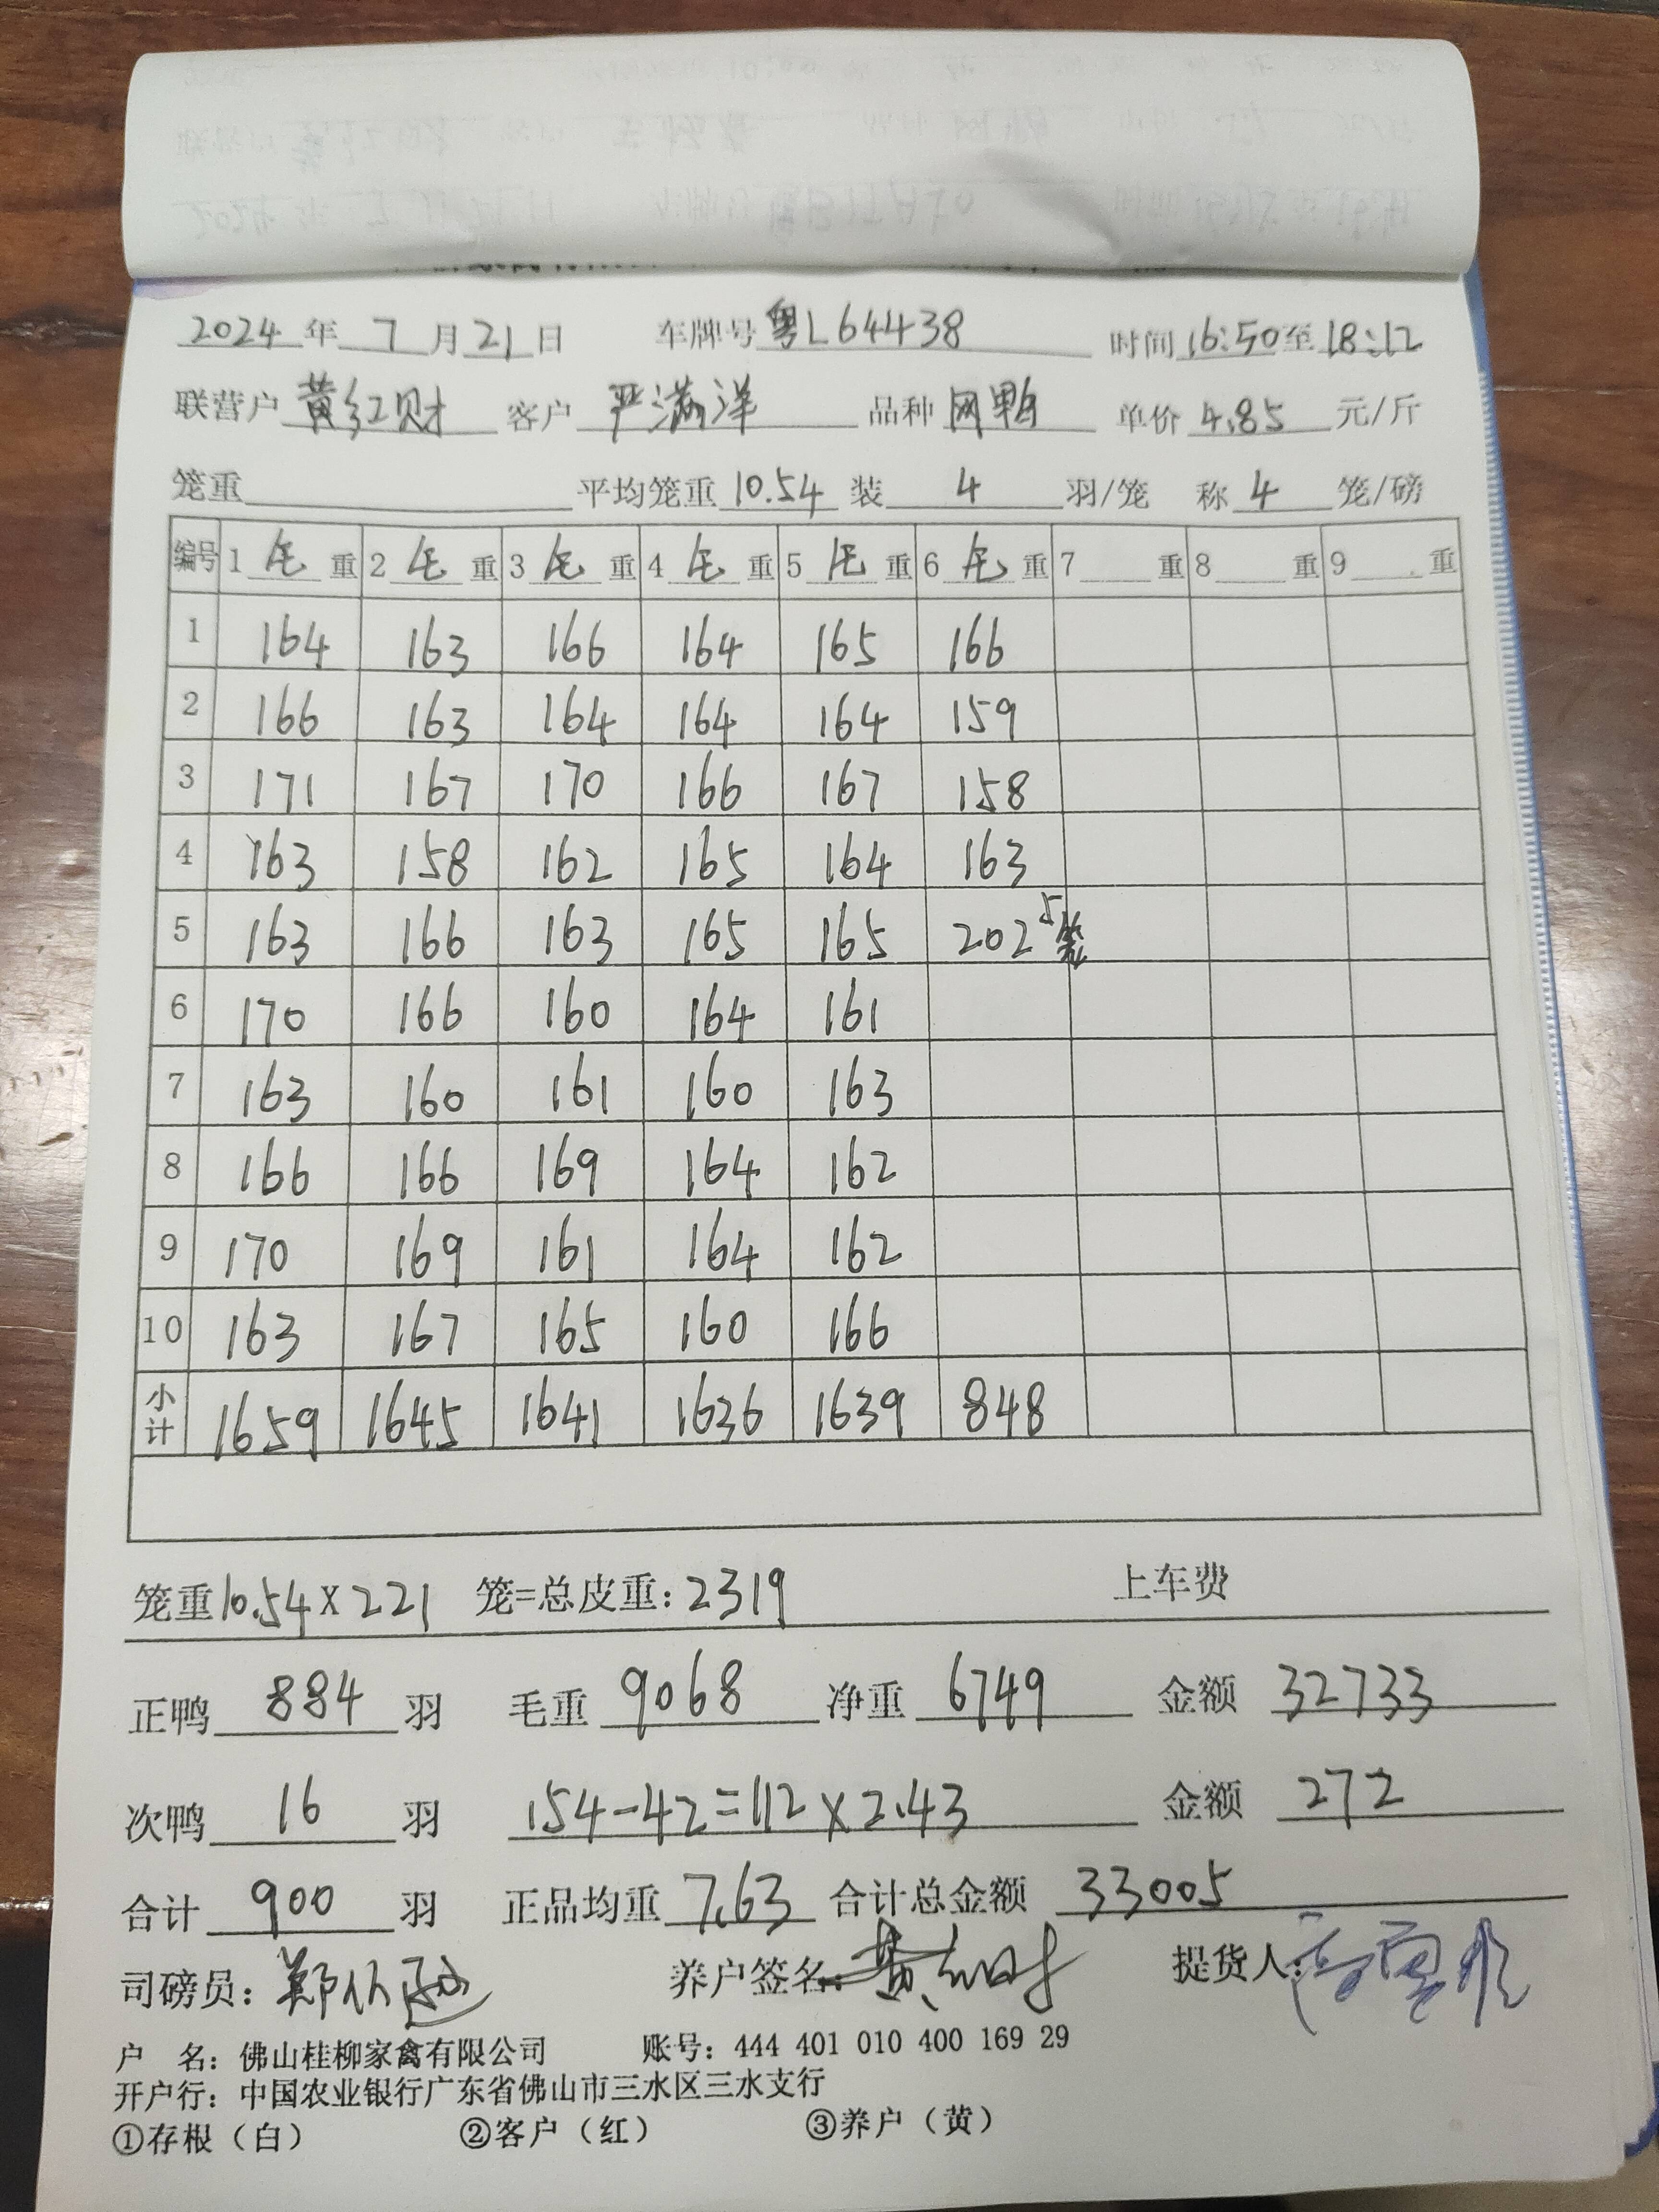 2024 年 7 月 21 日 车牌号 粤L64438 时间 16:50 至 18:12
联营户 黄红财 客户 严满洋 品种 网鸭 单价 4.85 元/斤
笼重 平均笼重 10.54 装 4 羽/笼 称 4 笼/磅
编号 1 毛 重 2 毛 重 3 毛 重 4 毛 重 5 毛 重 6 毛 重 7 重 8 重 9 重
1 164 163 166 164 165 166
2 166 163 164 164 164 159
3 171 167 170 166 167 158
4 163 158 162 165 164 163
5 163 166 163 165 165 202 5笼
6 170 166 160 164 161
7 163 160 161 160 163
8 166 166 169 164 162
9 170 169 161 164 162
10 163 167 165 160 166
小计 1659 1645 1641 1636 1639 848
笼重 10.54 X 221 笼=总皮重: 2319 上车费
正鸭 884 羽 毛重 9068 净重 6749 金额 32733
次鸭 16 羽 154-42=112 X 2.43 金额 272
合计 900 羽 正品均重 7.63 合计总金额 33005
司磅员: 养户签名: 提货人:
户 名: 佛山桂柳家禽有限公司 账号: 444 401 010 400 169 29
开户行: 中国农业银行广东省佛山市三水区三水支行
①存根（白） ②客户（红） ③养户（黄）